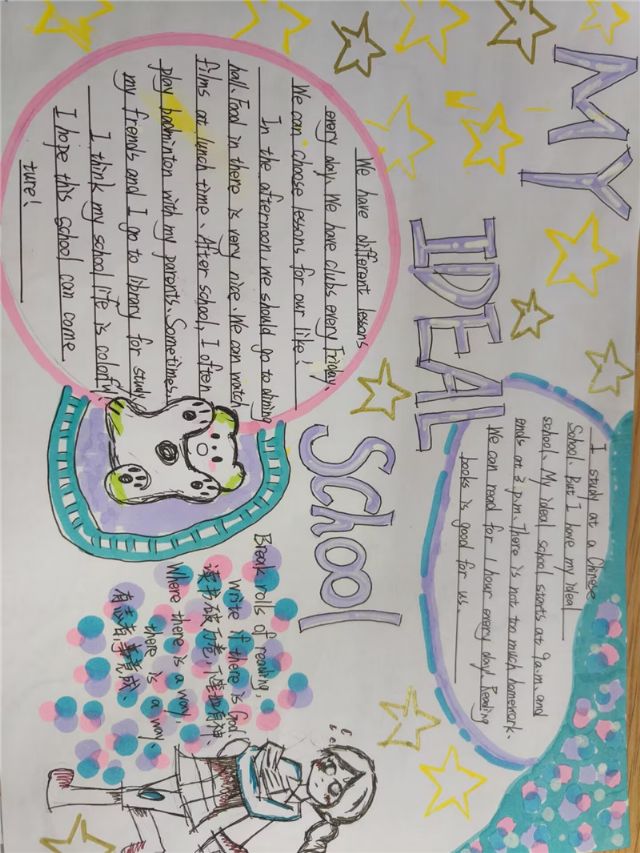 MY
IDEAL
School
I study at a Chinese
School. But I have my ideal
school. My ideal school starts at 9 a.m. and
ends at 3 p.m. There is not too much homework.
We can read for 1 hour every day. Reading
books is good for us.
We have different lessons
every day. We have clubs every Friday.
We can choose lessons for our like!
In the afternoon, we should go to dining
hall. Food in there is very nice. We can watch
films at lunch time. After school, I often
play badminton with my parents. Sometimes
my friends and I go to library for study
I think my school life is colorful!
I hope this school can come
ture!
Break rolls of reading,
write if there is God
读书破万卷,下笔如有神.
Where there is a way,
there is a way.
有志者,事竟成.